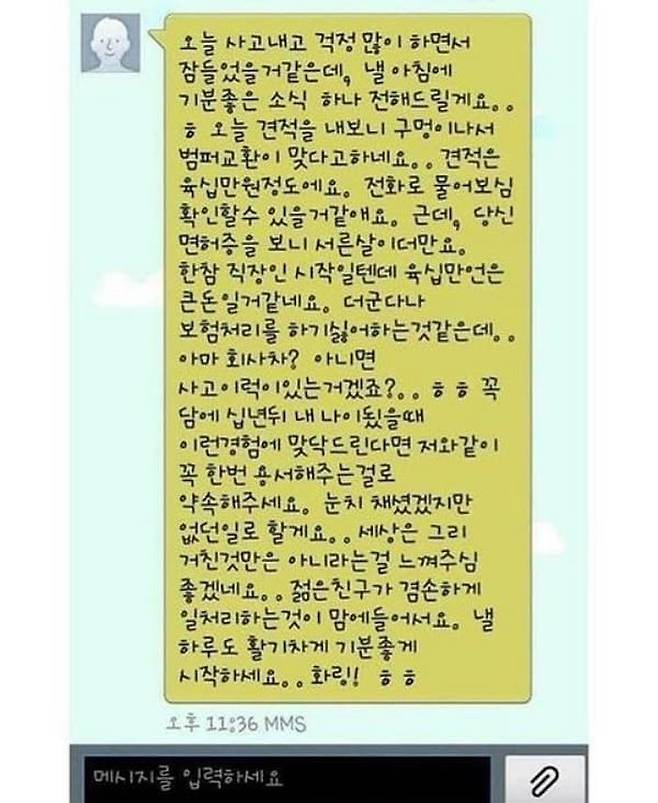 오늘 사고내고 걱정 많이 하면서
잠들었을거같은데, 낼 아침에
기분좋은 소식 하나 전해드릴게요..
ㅎ 오늘 견적을 내보니 구멍이나서
범퍼교환이 맞다고하네요.. 견적은
육십만원정도에요. 전화로 물어보심
확인할수 있을거같애요. 근데, 당신
면허증을 보니 서른살이더만요.
한참 직장인 시작일텐데 육십만언은
큰돈일거같네요. 더군다나
보험처리를 하기싫어하는것같은데..
아마 회사차? 아니면
사고이럭이있는거겠죠?.. ㅎㅎ 꼭
담에 십년뒤 내 나이됬을때
이런경험에 맞닥드린다면 저와같이
꼭 한번 용서해주는걸로
약속해주세요. 눈치 채셨겠지만
없던일로 할게요.. 세상은 그리
거친것만은 아니라는걸 느껴주심
좋겠네요.. 젊은친구가 겸손하게
일처리하는것이 맘에들어서요. 낼
하루도 활기차게 기분좋게
시작하세요.. 화링! ㅎㅎ
오후 11:36 MMS
메시지를 입력하세요